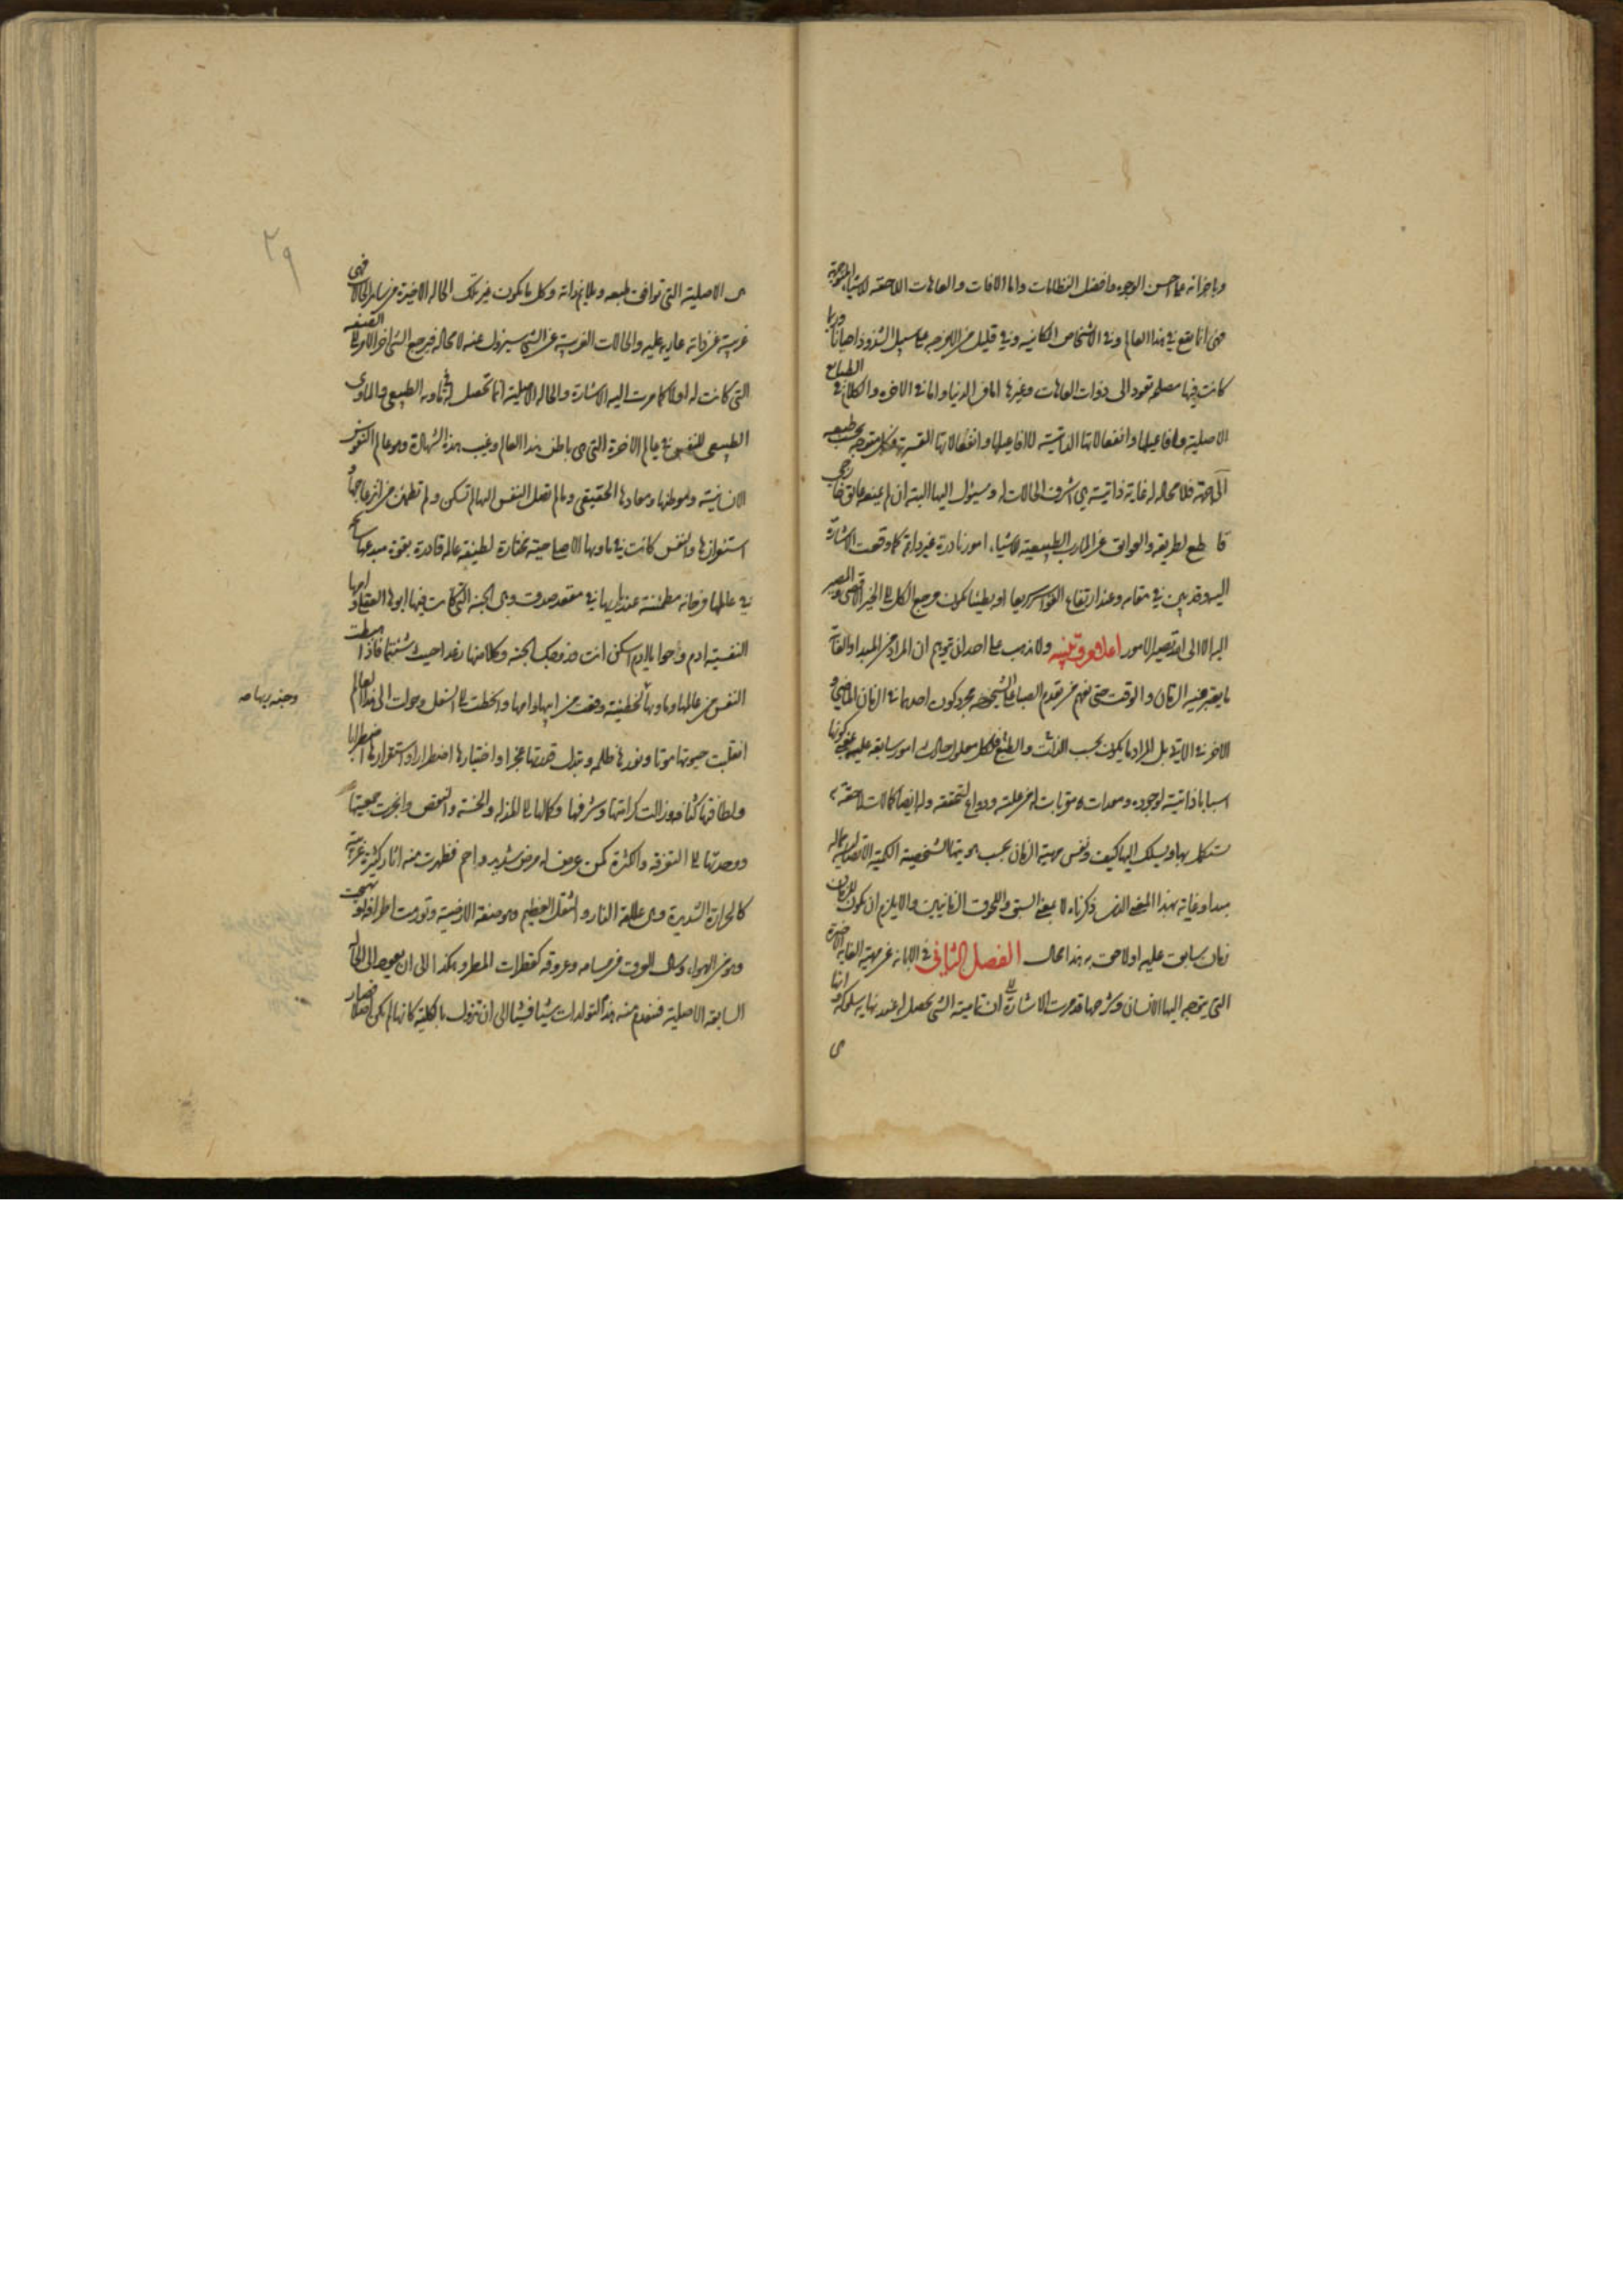 وباجزائه على احسن الوجوه وافضل النظامات واما الافات والعاهات اللاحقة للاشياء المتوجهة
فهي انما يقع في هذا العالم وفي الاشخاص الكائنة وفي قليل من الاوجه على سبيل الشذوذ احيانا وربما
كانت فيها مصلحة تعود الى ذوات العاهات وغيرها اما في الدنيا واما في الاخرة والكلام في الطبايع
الاصلية وافاعيلها وانفعالاتها الذاتية لا افاعيلها وانفعالاتها القسرية فكل متوجه بحسب طبعه
الى جهة فلا محالة له غاية ذاتية هي اشرف الحالات له وسيؤل اليها البتة ان لم يمنعه عائق خارجي
قاطع لطريقه والعوائق عن المارب الطبيعية للاشياء امور نادرة غير دائمة كما وقعت الاشارة
اليه وقد بين في مقامه وعند ارتفاع القواسر سريعا او بطيئا يكون مرجع الكل الى الخير الاقصى والمصير
اليه الا الى الله تصير الامور اعلام وتنبيه ولا يذهب على احد ان يتوهم ان المراد من المبدا والغاية
ما يعتبر فيه الزمان والوقت حتى يفهم من تقدم الصبا على الشيخوخة مجرد كون احدهما في الزمان الماضي و
الاخر في الاتي بل المراد ما يكون بحسب الذات والطبع فلكل معلول حال له امور سابقة عليه عنى بكونها
اسبابا ذاتية لوجوده ومعدات مقربات له من علته ودواع لتحققه وله ايضا كمالات لاحقة به
يستكمل بها ويسلك اليها كيف ونفس مهية الزمان بحسب هويتها الشخصية الكمية الاتصالية له
مبدا وغاية بهذا المعنى الذي ذكرناه لا بمعنى السبق واللحوق الزمانيين والا يلزم ان يكون للزمان
زمان سابق عليه او لاحق به هذا محال الفصل الثاني في الابانة عن مهية الغاية الاخيرة
التي يتوجه اليها الانسان وشرحها قد مرت الاشارة الى ان تمامية الشي يحصل له عند نهاية سلوكه و انها
هي
٢٩
هي الاصلية التي توافق طبعه ويلايم ذاته وكل ما يكون غير تلك الحالة الاخيرة من سائر الحالات فهي
غريبة عن ذاته عارية عليه والحالات الغريبة عن الشي سيزول عنه لا محالة فيرجع الشي اخر الامر الى الصفة
التي كانت له اولا كما مرت اليه الاشارة والحالة الاصلية انما تحصل له في ماويه الطبيعي والماوى
الطبيعي للنفس في عالم الاخرة التي هي باطن هذا العالم وغيب هذه الشهادة وهو عالم النفوس
الانسانية وموطنها ومعادها الحقيقي وما لم تصل النفس اليها لم تسكن ولم تطمئن من انزعاجها و
استفزازها والنفس كانت في ماويها الاصلي حية مختارة لطيفة عالمة قادرة بقوة مبدعها
في عالمها فرحانة مطمئنة عند ابيها في مقعد صدق وهي الجنة التي كانت فيها ابوها العقل وامها
النفسية ادم وحوا يا ادم اسكن انت وزوجك الجنة وكلا منها رغدا حيث شئتما فاذا هبطت
النفس من عالمها وماويها لخطيئة وقعت من ابيها وامها وانحطت الى السفل وحولت الى هذا العالم
انقلبت حيوتها موتا ونورها ظلمة وتبدل قدرتها عجزا واختيارها اضطرارا واستقرارها اضطرابا
ولطافتها كثافة وزالت كرامتها وشرفها وكمالها الى المذلة والخسة والنقص وانجرت جمعيتها
ووحدتها الى التفرقة والكثرة كمن عرض له مرض شديد واحم فظهرت منه اثار كثيرة غريبة
كالحرارة الشديدة وهي علامة النار والثقل العظيم وهو صفة الارضية وتورمت اطرافه وتهيجت
وهو من الهواء وسال العرق من مسامه وعروقه كقطرات المطر وهكذا الى ان يعود الى الحالة
السابقة الاصلية فينعدم منه هذه التولدات شيئا فشيئا الى ان تزول بالكلية كانها لم تكن اصلا فصار
وجنة ربها صه